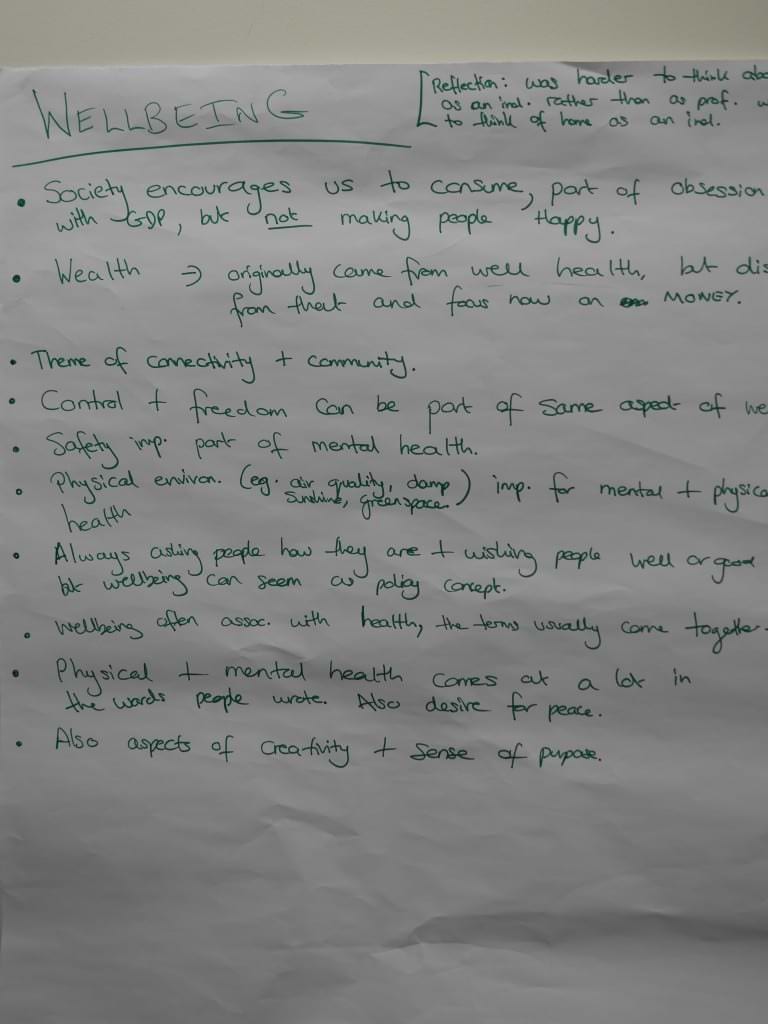 WELLBEING
[Reflection: was harder to think abo
as an ind. rather than as prof. w
to think of home as an ind.
• Society encourages us to consume, part of obsession
with GDP, but not making people Happy.
• Wealth → originally came from well health, but dis
from that and focus now on MONEY.
• Theme of connectivity + community.
• Control + freedom can be part of same aspect of we
• Safety imp. part of mental health.
• Physical environ. (eg. air quality, damp) imp. for mental + physica
sunshine, greenspace.
health
• Always asking people how they are + wishing people well or good
but wellbeing can seem as policy concept.
• Wellbeing often assoc. with health, the terms usually come together.
• Physical + mental health comes out a lot in
the words people wrote. Also desire for peace.
• Also aspects of creativity + sense of purpose.